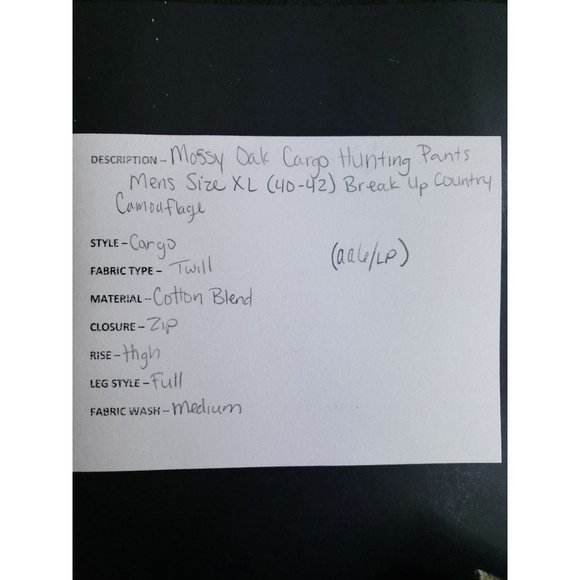 DESCRIPTION - Mossy Oak Cargo Hunting Pants
Mens Size XL (40-42) Break Up Country
Camouflage
STYLE - Cargo
(aa6/LP)
FABRIC TYPE - Twill
MATERIAL - Cotton Blend
CLOSURE - Zip
RISE - High
LEG STYLE - Full
FABRIC WASH - Medium